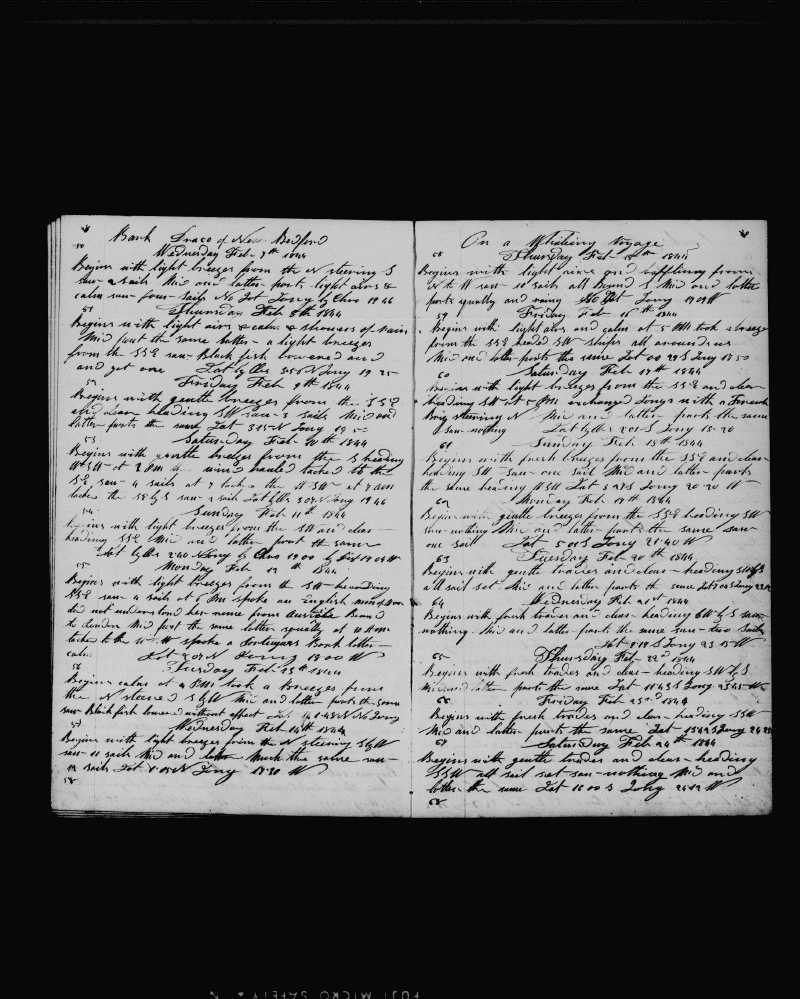 Bark Draco of New Bedford
Wednesday Feb 7th 1844
Begins with light breezes from the N steering S
saw 2 sails Mid and latter parts light airs &
calm saw four sails No Lat Long by Chro 19 46
51
Thursday Feb 8th 1844
Begins with light airs & calm & showers of rain
Mid part the same latter a light breezes
from the SSE saw Black fish lowered and
and got one Lat by Obs 3 56 N Long 19 25
52
Friday Feb 9th 1844
Begins with gentle breezes from the SSE
and clear heading SW saw 3 sails Mid and
latter parts the same Lat 3 15 N Long 19 50
53
Saturday Feb 10th 1844
Begins with gentle breezes from the S heading
WSW at 2 PM the wind hauled tacked to the
SE saw 4 sails at 7 tacked the WSW at 7 AM
tacked the SE by S saw 2 sails Lat by Obs 3 07 N Long 19 46
54
Sunday Feb 11th 1844
Begins with light breezes from the SW and clear
heading SSE Mid and latter part the same
Lat by Obs 2 40 N Long by Chro 19 00
55
Monday Feb 12th 1844
Begins with light breezes from the SW heading
SSE saw 4 sails at 6 PM spoke an English
did not understand her name from Bound
to London Mid part the same latter squally at 10 AM
tacked to the spoke a Portugues Bark latter
calm Lat 2 07 N Long 19 00 W
56
Tuesday Feb 13th 1844
Begins calm at 2 PM took a breezes from
the N steered S by W Mid and latter parts the same
saw Black fish lowered without effect Lat 1 48 N No Long
57
Wednesday Feb 14th 1844
Begins with light breezes from the N steering S by W
saw 11 sails Mid and latter Much the same saw
sails Lat N Long 18 30 W
58
On a Whaleing Voyage
58
Thursday Feb 15th 1844
Begins with light airs and baffleing from
N to W saw 10 sails all Bound S Mid and latter
parts squally and rainy No Lat Long W
59
Friday Feb 16th 1844
Begins with light airs and calm at 5 PM took a breeze
from the SSE headed SW ships all around us
Mid and latter parts the same Lat 00 29 S Long 17 50
60
Saturday Feb 17th 1844
Begins with light breezes from the SSE and clear
heading SW at 5 PM exchanged Longs with a French
Brig steering N Mid and latter parts the same
saw nothing Lat by Obs 2 01 S Long 18 20
61
Sunday Feb 18th 1844
Begins with fresh breezes from the SSE and clear
heading SW saw one sail Mid and latter parts
the same heading WSW Lat 3 27 S Long 20 20 W
62
Monday Feb 19th 1844
Begins with gentle breezes from the SSE heading SW
saw nothing Mid and latter parts the same saw
one sail Lat 5 01 S Long 21 40 W
63
Tuesday Feb 20th 1844
Begins with gentle trades and clear heading SW by S
all sail set Mid and latter parts the same Lat 7 04 S Long
64
Wednesday Feb 21st 1844
Begins with fresh trades and clear heading SW by S saw
nothing Mid and latter parts the same saw two sails
Lat 9 19 S Long 23 15 W
65
Thursday Feb 22nd 1844
Begins with fresh trades and clear heading SW by S
Mid and latter parts the same Lat 11 43 S Long 23 45 W
66
Friday Feb 23rd 1844
Begins with fresh trades and clear heading SSW
Mid and latter parts the same Lat S Long
67
Saturday Feb 24th 1844
Begins with gentle trades and clear heading
SSW all sail set saw nothing Mid and
latter the same Lat 16 00 S Long W
68
FUJI MICRO SAFETY